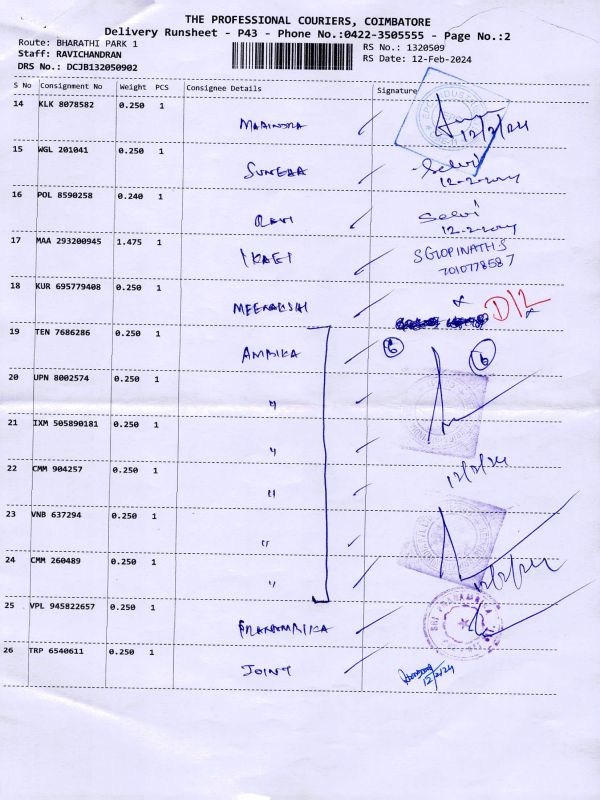 THE PROFESSIONAL COURIERS, COIMBATORE
Delivery Runsheet - P43 - Phone No.:0422-3505555 - Page No.:2
Route: BHARATHI PARK 1 RS No.: 1320509
Staff: RAVICHANDRAN RS Date: 12-Feb-2024
DRS No.: DCJB132050902
S No Consignment No Weight PCS Consignee Details Signature
14 KLK 8078582 0.250 1
12/2/24
15 WGL 201041 0.250 1 Selvi
12-2-2024
16 POL 8590258 0.240 1 RAVI Selvi
12-2-2024
17 MAA 293200945 1.475 1 S GOPINATH S
7010778587
18 KUR 695779408 0.250 1 MEENAKSHI D/L
19 TEN 7686286 0.250 1 AMBIKA 6 6
20 UPN 8002574 0.250 1 "
21 IXM 505890181 0.250 1 "
12/2/24
22 CMM 904257 0.250 1 "
23 VNB 637294 0.250 1 "
24 CMM 260489 0.250 1 "
12/2/24
25 VPL 945822657 0.250 1
26 TRP 6540611 0.250 1 JOINT
12/2/24